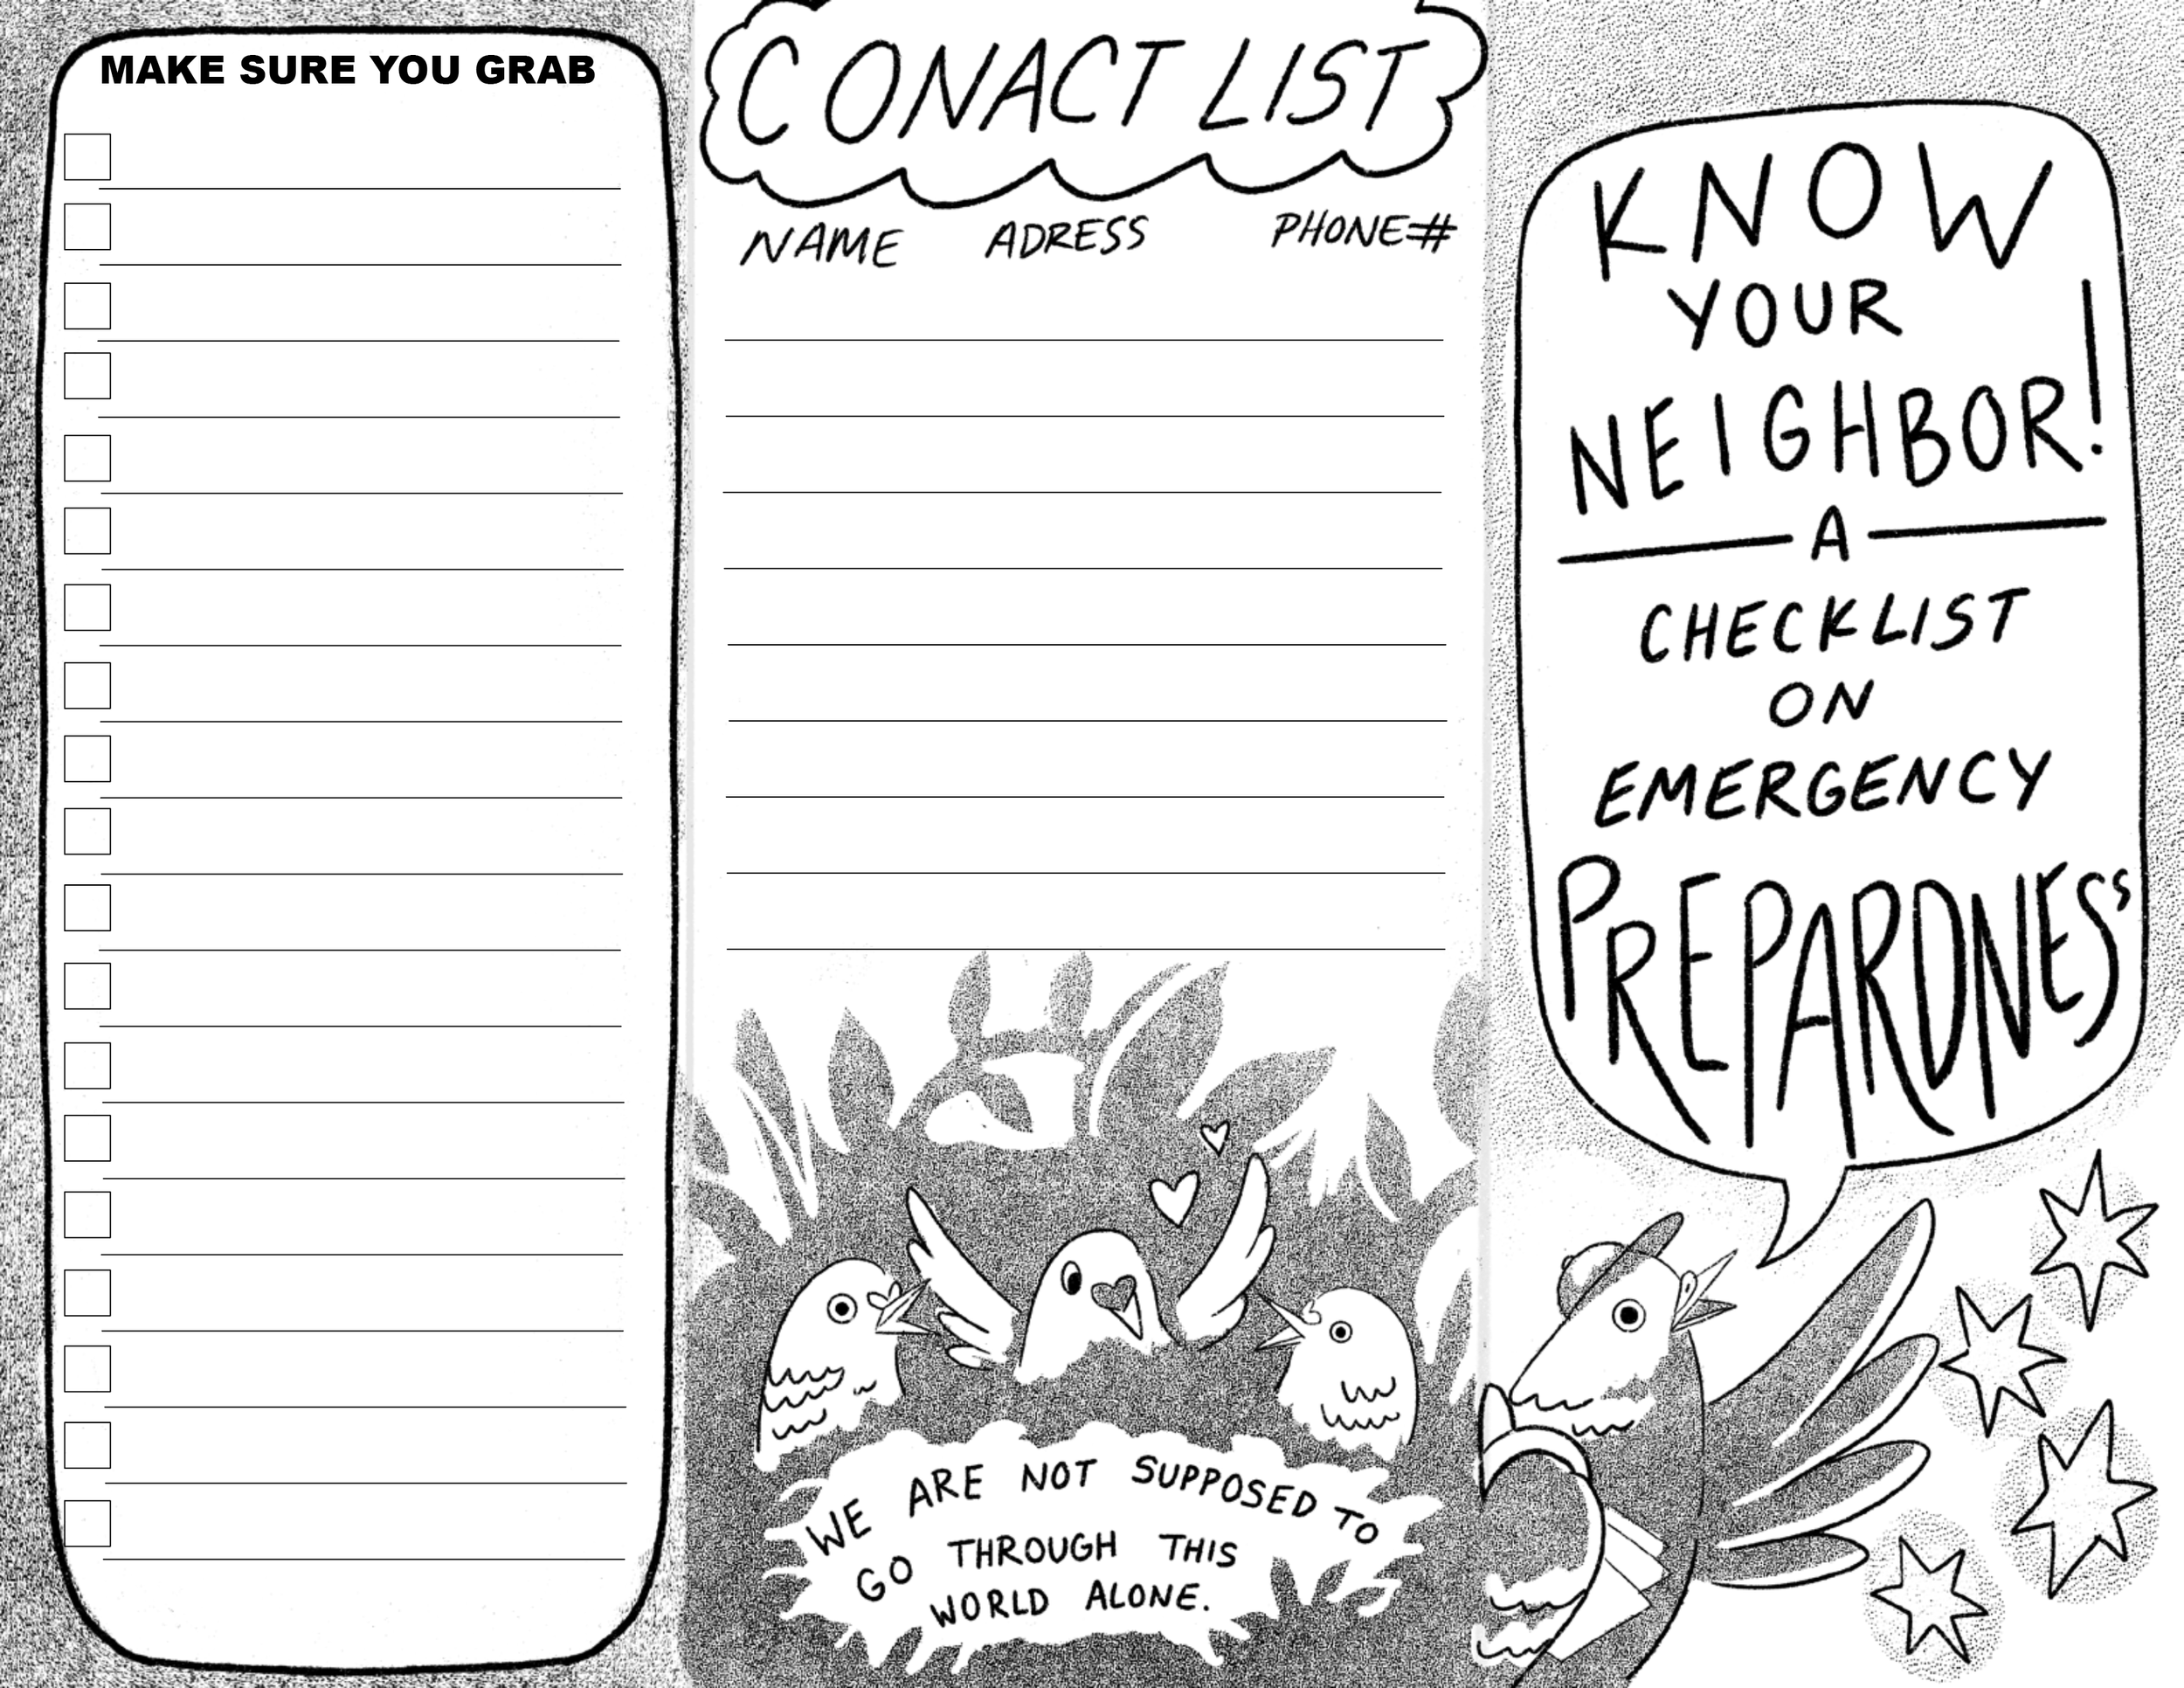 MAKE SURE YOU GRAB
CONACT LIST
NAME ADRESS PHONE#
WE ARE NOT SUPPOSED TO
GO THROUGH THIS
WORLD ALONE.
KNOW
YOUR
NEIGHBOR!
A
CHECKLIST
ON
EMERGENCY
PREPARDNESS